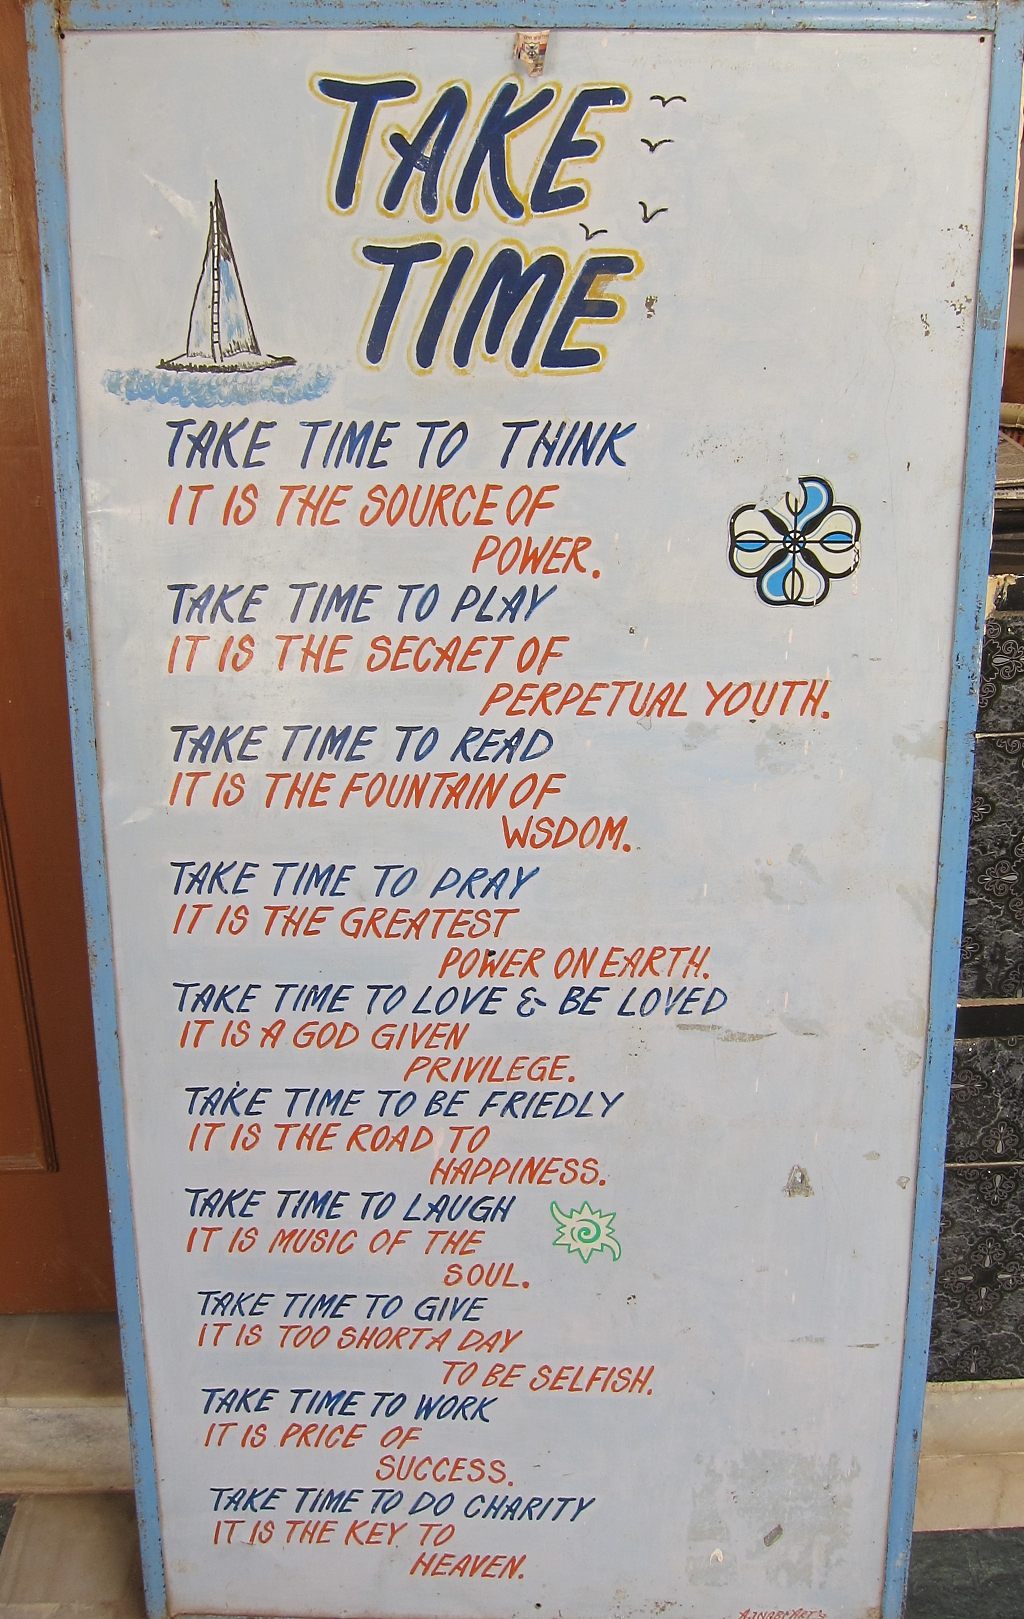 TAKE
TIME
TAKE TIME TO THINK
IT IS THE SOURCE OF
POWER.
TAKE TIME TO PLAY
IT IS THE SECAET OF
PERPETUAL YOUTH.
TAKE TIME TO READ
IT IS THE FOUNTAIN OF
WSDOM.
TAKE TIME TO PRAY
IT IS THE GREATEST
POWER ON EARTH.
TAKE TIME TO LOVE & BE LOVED
IT IS A GOD GIVEN
PRIVILEGE.
TAKE TIME TO BE FRIEDLY
IT IS THE ROAD TO
HAPPINESS.
TAKE TIME TO LAUGH
IT IS MUSIC OF THE
SOUL.
TAKE TIME TO GIVE
IT IS TOO SHORT A DAY
TO BE SELFISH.
TAKE TIME TO WORK
IT IS PRICE OF
SUCCESS.
TAKE TIME TO DO CHARITY
IT IS THE KEY TO
HEAVEN.